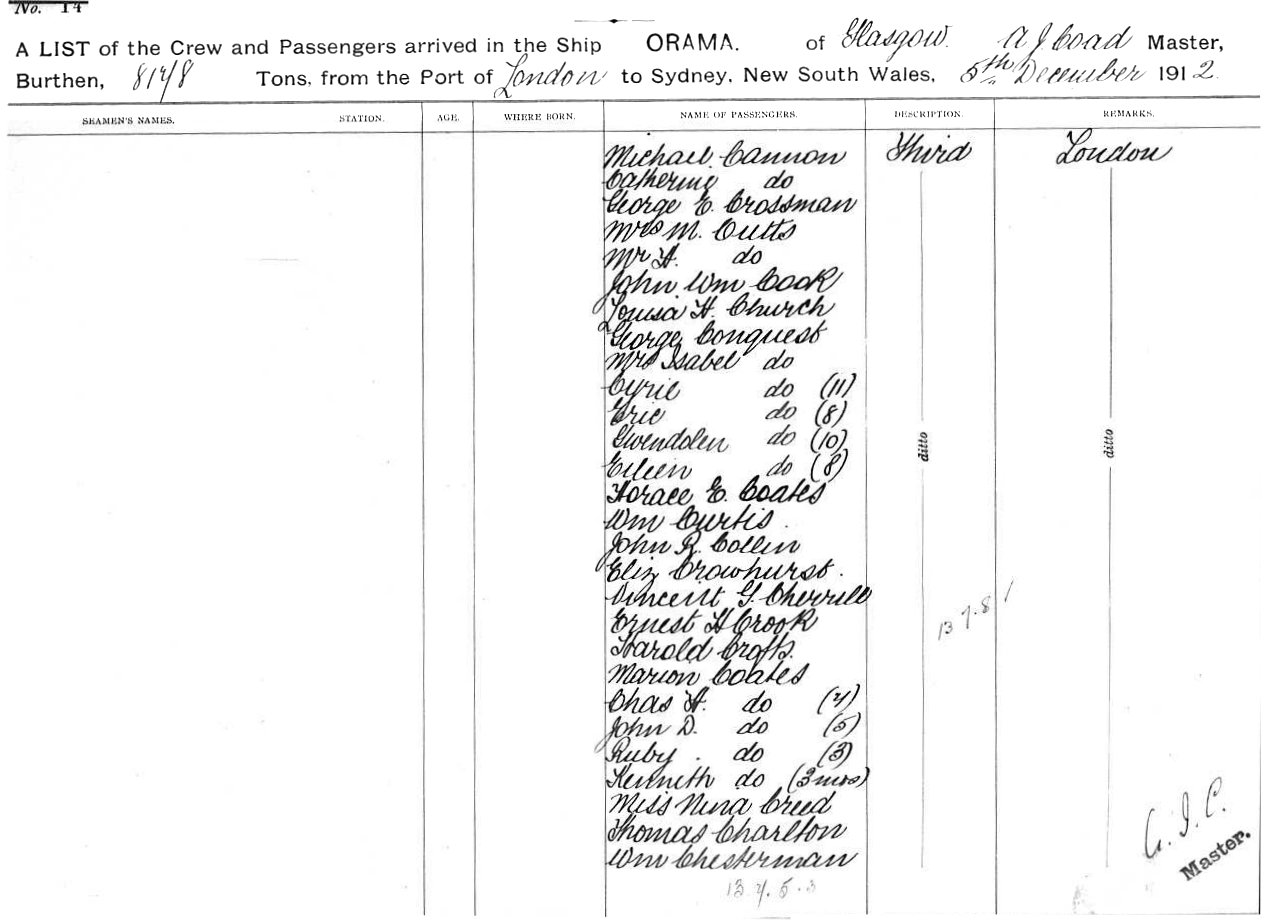 No. 14
A LIST of the Crew and Passengers arrived in the Ship ORAMA. of Glasgow. A J Coad Master,
Burthen, 8178 Tons, from the Port of London to Sydney, New South Wales, 5th December 1912
SEAMEN'S NAMES. STATION. AGE. WHERE BORN. NAME OF PASSENGERS. DESCRIPTION. REMARKS.
Michael Cannon Third London
Catherine do
George E. Crossman
Mrs M. Cutts
Mr H. do
John Wm Cook
Louisa H. Church
George Conquest
Mrs Isabel do
Cyril do (11)
Eric do (8)
Gwendolen do (10) ditto ditto
Eileen do (8)
Horace E. Coates
Wm Curtis.
John R. Collin
Eliz Crowhurst.
Vincent G. Cherrill
Ernest H Crook
Harold Crofts.
Marion Coates
Chas H. do (7)
John D. do (5)
Ruby. do (3)
Kenneth do (3 mos)
Miss Nina Creed
Thomas Charlton
Wm Chesterman
Master.